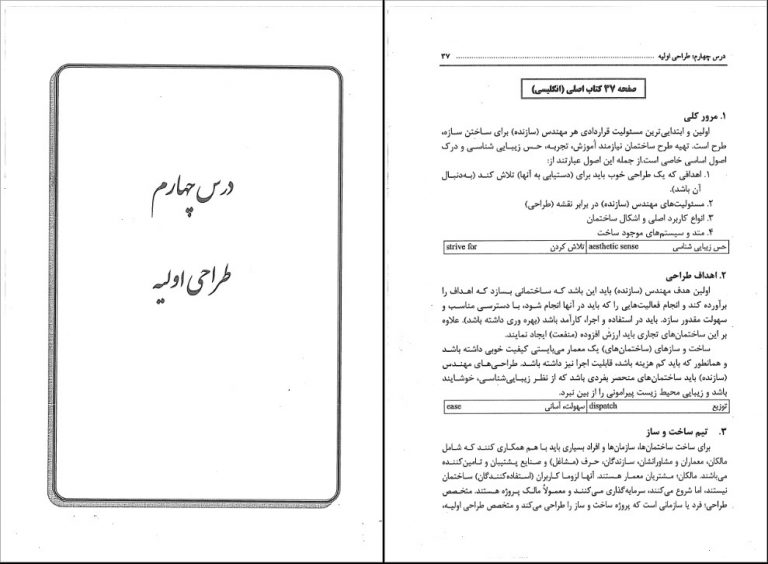 درس چهارم
طراحی اولیه
درس چهارم: طراحی اولیه ................ ۳۷
صفحه ۳۷ کتاب اصلی (انگلیسی)
۱. مرور کلی
اولین و ابتدایی‌ترین مسئولیت قراردادی هر مهندس (سازنده) برای ساختن سازه،
طرح است. تهیه طرح ساختمان نیازمند آموزش، تجربه، حس زیبایی شناسی و درک
اصول اساسی خاصی است.از جمله این اصول عبارتند از:
۱. اهدافی که یک طراحی خوب باید برای (دستیابی به آنها) تلاش کند (به‌دنبال
آن باشد).
۲. مسئولیت‌های مهندس (سازنده) در برابر نقشه (طراحی)
۳. انواع کاربرد اصلی و اشکال ساختمان
۴. متد و سیستم‌های موجود ساخت
حس زیبایی شناسی aesthetic sense تلاش کردن strive for
۲. اهداف طراحی
اولین هدف مهندس (سازنده) باید این باشد که ساختمانی بسازد که اهداف را
برآورده کند و انجام فعالیت‌هایی را که باید در آنها انجام شود، با دسترسی مناسب و
سهولت مقدور سازد. باید در استفاده و اجرا، کارآمد باشد (بهره وری داشته باشد). علاوه
بر این ساختمان‌های تجاری باید ارزش افزوده (منفعت) ایجاد نمایند.
ساخت و سازهای (ساختمان‌های) یک معمار می‌بایستی کیفیت خوبی داشته باشد
و همانطور که باید کم هزینه باشد، قابلیت اجرا نیز داشته باشد. طراحی‌های مهندس
(سازنده) باید ساختمان‌های منحصر بفردی باشد که از نظر زیبایی‌شناسی، خوشایند
باشد و زیبایی محیط زیست پیرامونی را از بین نبرد.
توزیع dispatch سهولت، آسانی ease
۳. تیم ساخت و ساز
برای ساخت ساختمان‌ها، سازمان‌ها و افراد بسیاری باید با هم همکاری کنند که شامل
مالکان، معماران و مشاورانشان، سازندگان، حرف (مشاغل) و صنایع پشتیبان و تامین‌کننده
می‌باشند. مالکان؛ مشتریان معمار هستند. آنها لزوما کاربران (استفاده‌کنندگان) ساختمان
نیستند، اما شروع می‌کنند، سرمایه‌گذاری می‌کنند و معمولاً مالک پروژه هستند. متخصص
طراحی؛ فرد یا سازمانی است که پروژه ساخت و ساز را طراحی می‌کند و متخصص طراحی اولیه،